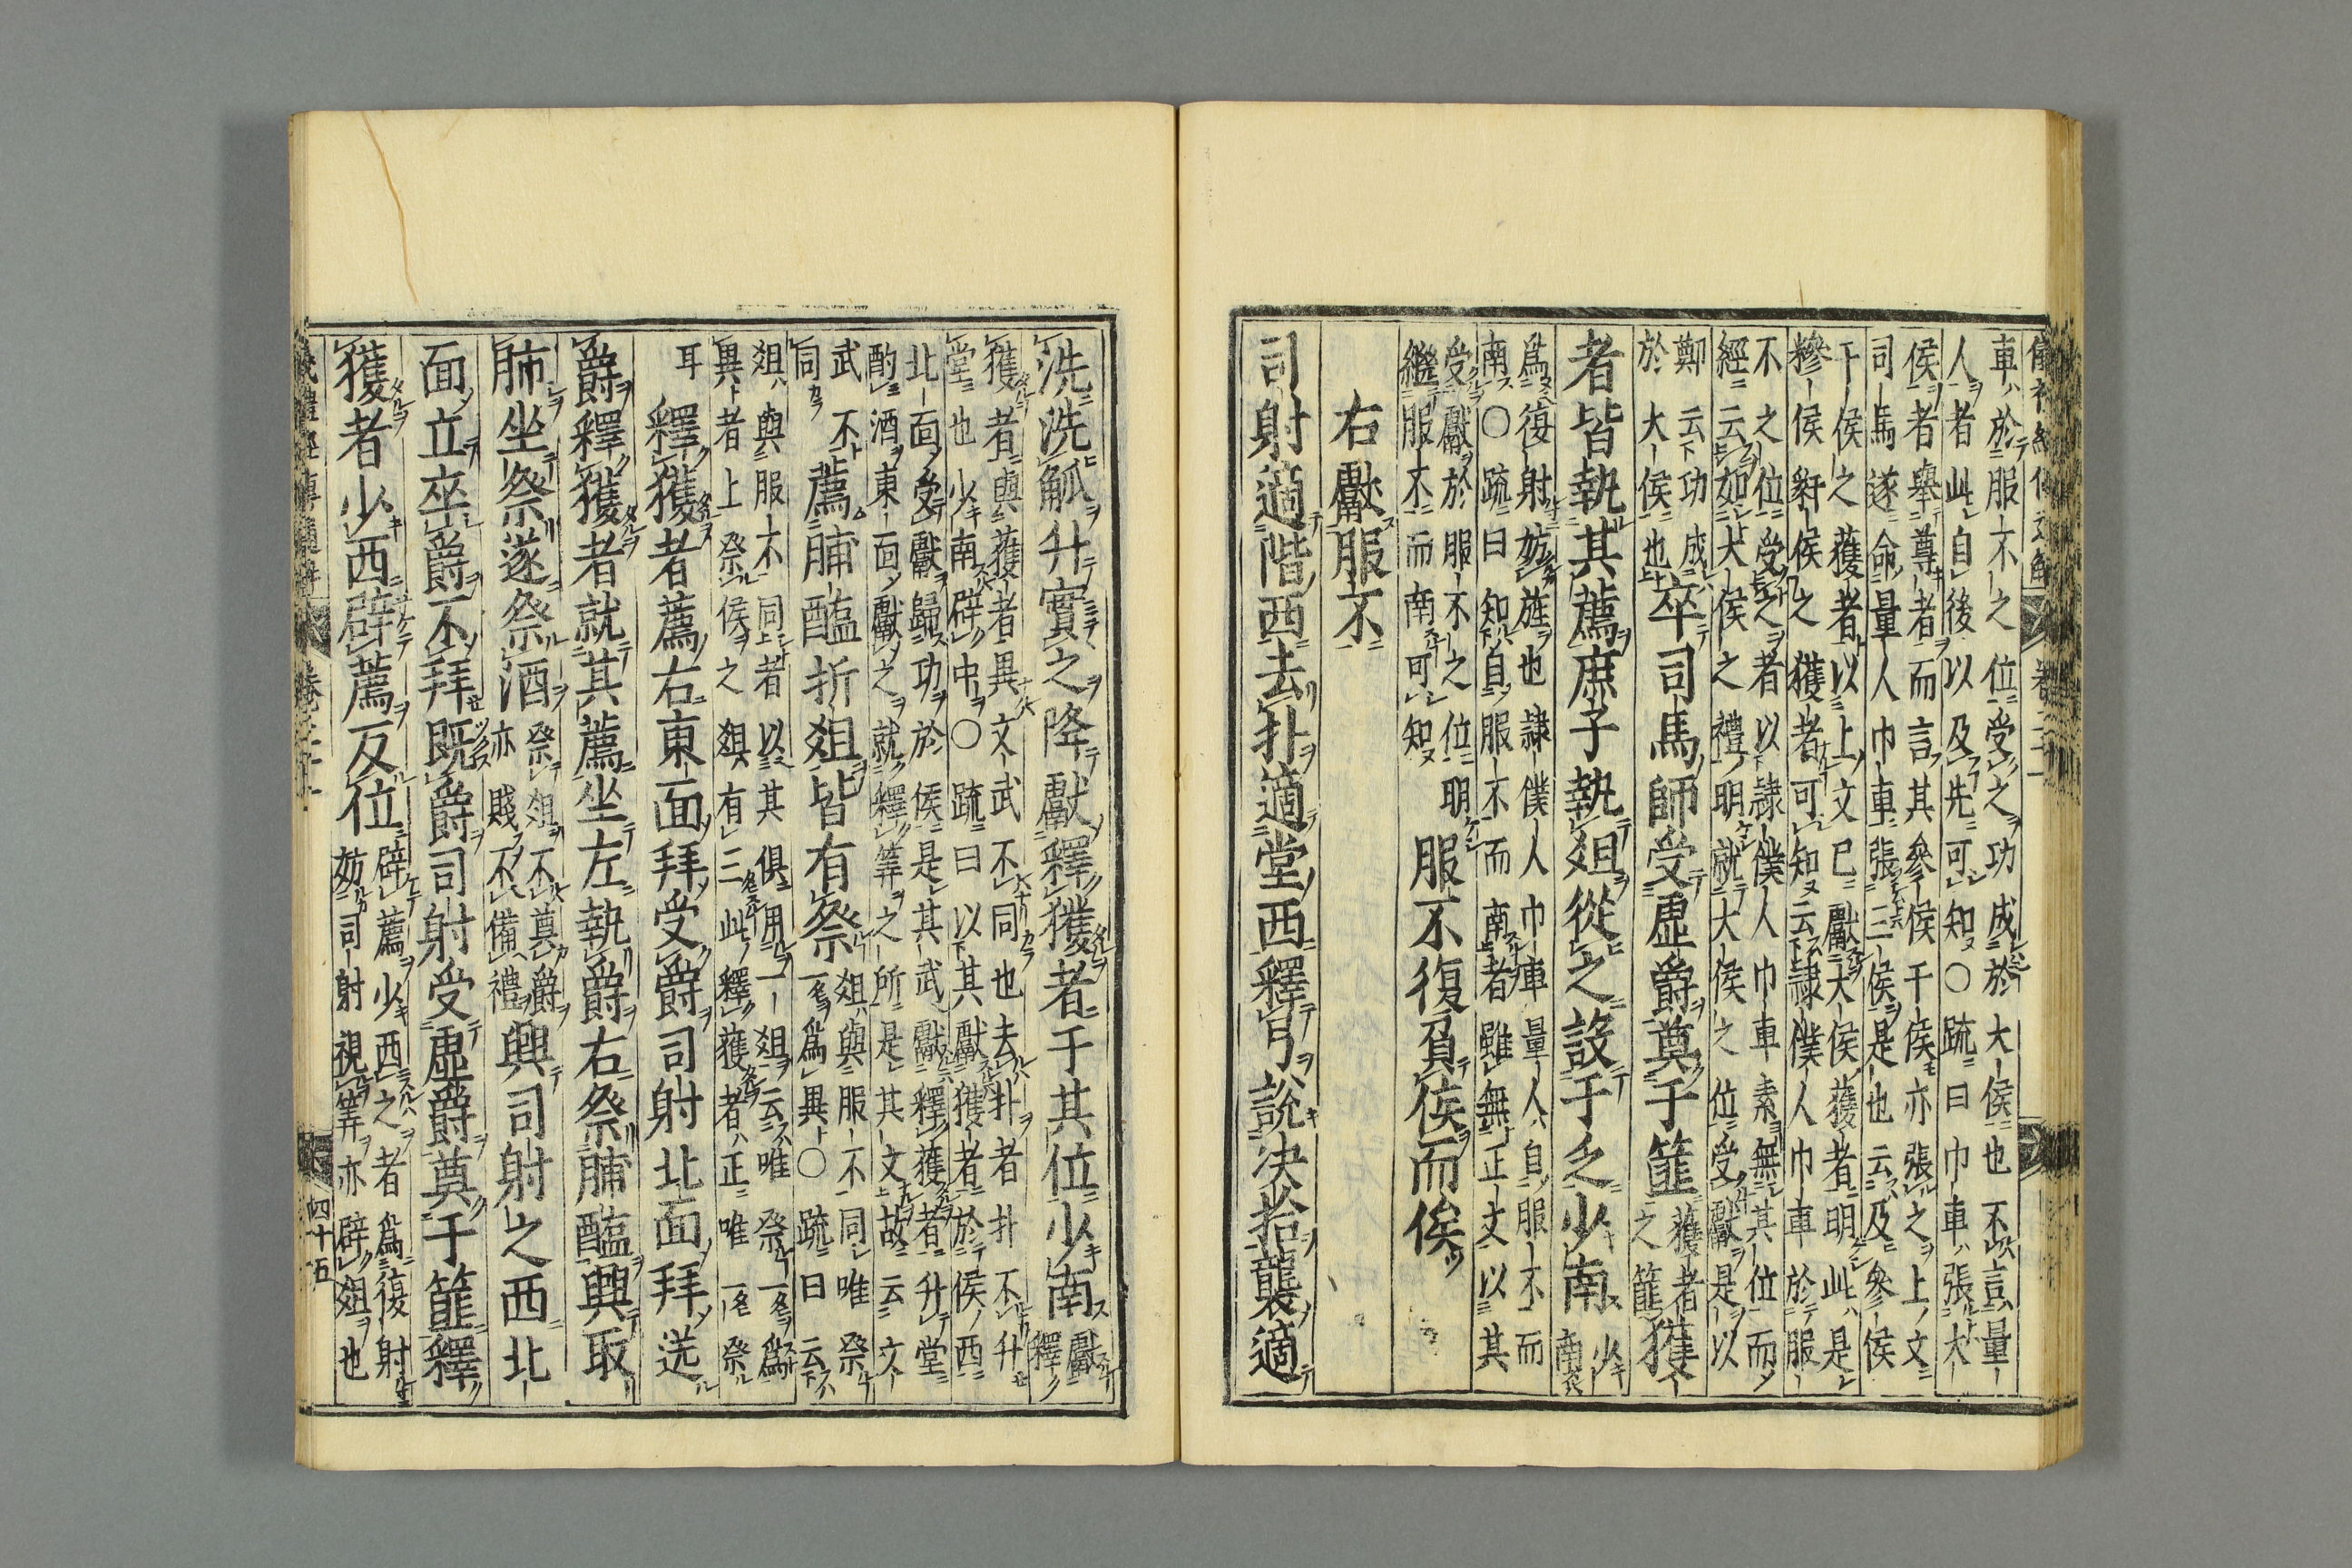 車於服不之位受之功成於大侯也不言量
人者此自後以及先可知○疏曰巾車張大
侯者舉尊者而言其參侯干侯亦張之上文
司馬遂命量人巾車張三侯是也云及參侯
干侯之獲者以上文已獻大侯獲者明此是
糝侯豻侯之獲者可知云隷僕人巾車於服
不之位受之者以隷僕人巾車素無其位而
經云如大侯之禮明就大侯之位受獻是以
鄭云功成
於大侯也
卒司馬師受虛爵奠于篚
獲者
之篚
獲
者皆執其薦庶子執俎從之設于乏少南
少
南
爲復射妨旌也隷僕人巾車量人自服不而
南○疏曰知自服不而南者雖無正文以其
受獻於服不之位明
繼服不而南可知
服不復負侯而俟
右獻服不
司射適階西去扑適堂西釋弓說决拾襲適
洗洗觚升實之降獻釋獲者于其位少南
獻
釋
獲者與獲者異文武不同也去扑者扑不升
堂也少南辟中○疏曰以其獻獲者於侯西
北面受獻歸功於侯是其武獻釋獲者升堂
酌酒東面獻之就釋筭之所是其文故云文
武不
同
薦脯醢折俎皆有祭
俎與服不同唯祭
一爲異○疏曰云
俎與服不同者以其俱用一俎云唯祭一爲
異者上祭侯之俎有三此釋獲者正唯一祭
耳
釋獲者薦右東面拜受爵司射北面拜送
爵釋獲者就其薦坐左執爵右祭脯醢興取
肺坐祭遂祭酒
祭俎不奠爵
亦賤不備禮
興司射之西北
面立卒爵不拜既爵司射受虛爵奠于篚釋
獲者少西辟薦反位
辟薦少西之者爲復射
妨司射視筭亦辟俎也
四十五